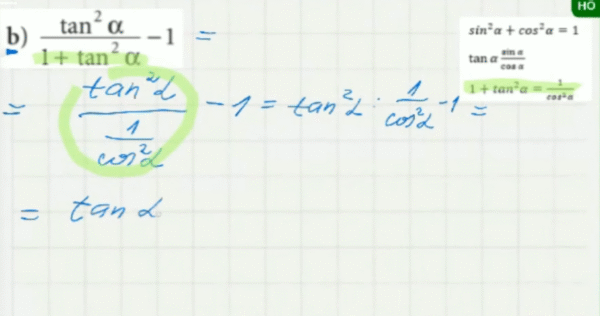 HO
b) tan² α / (1 + tan² α) − 1 =
sin²α + cos²α = 1
tan α sin α / cos α
1 + tan²α = 1 / cos²α
= tan²α / (1 / cos²α) − 1 = tan²α : 1 / cos²α − 1 =
= tan α